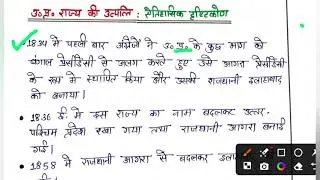 उ०प्र० राज्य की उत्पत्ति : ऐतिहासिक दृष्टिकोण
• 1834 में पहली बार अंग्रेजों ने उ० प्र० के कुछ भाग को
बंगाल प्रेसीडेंसी से अलग करते हुए उसे आगरा प्रेसीडेंसी
के रूप में स्थापित किया और उसकी राजधानी इलाहाबाद
को बनाया।
• 1836 ई. में इस राज्य का नाम बदलकर उत्तर-
पश्चिम प्रदेश रखा गया तथा राजधानी आगरा बनाई
गई।
• 1858 में राजधानी आगरा से बदलकर